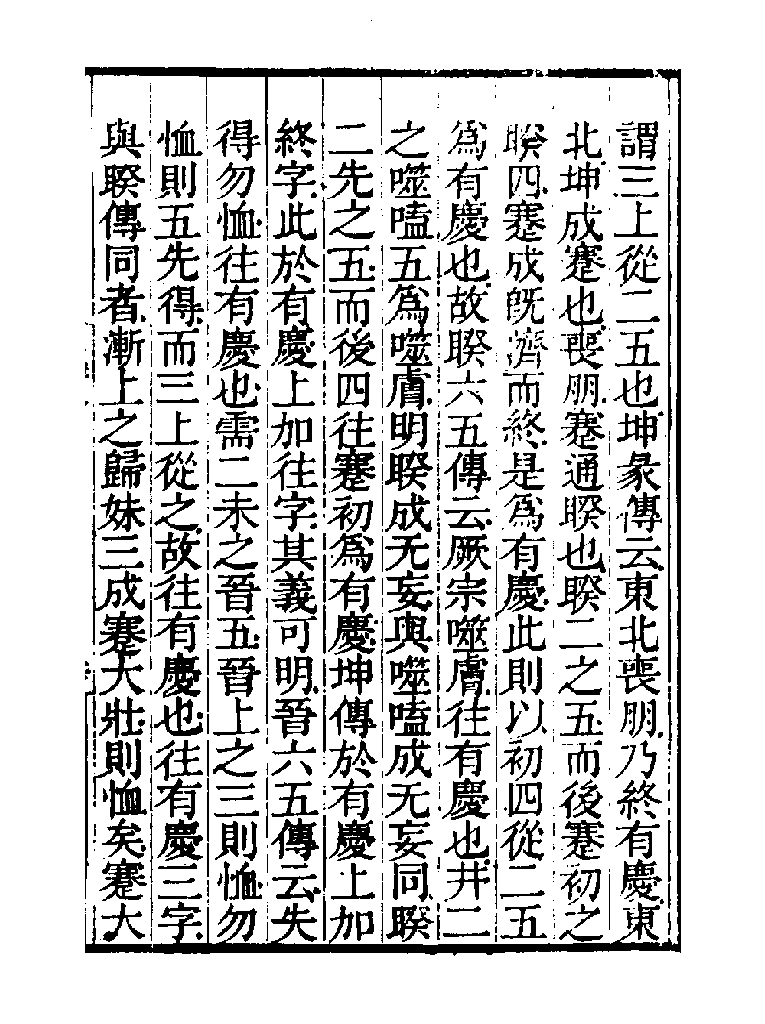 謂三上從二五也坤彖傳云東北喪朋乃終有慶東
北坤成蹇也喪朋蹇通睽也睽二之五而後蹇初之
睽四蹇成旣濟而終是爲有慶此則以初四從二五
爲有慶也故睽六五傳云厥宗噬膚往有慶也井二
之噬嗑五爲噬膚明睽成无妄與噬嗑成无妄同睽
二先之五而後四往蹇初爲有慶坤傳於有慶上加
終字此於有慶上加往字其義可明晉六五傳云失
得勿恤往有慶也需二未之晉五晉上之三則恤勿
恤則五先得而三上從之故往有慶也往有慶三字
與睽傳同者漸上之歸妹三成蹇大壯則恤矣蹇大